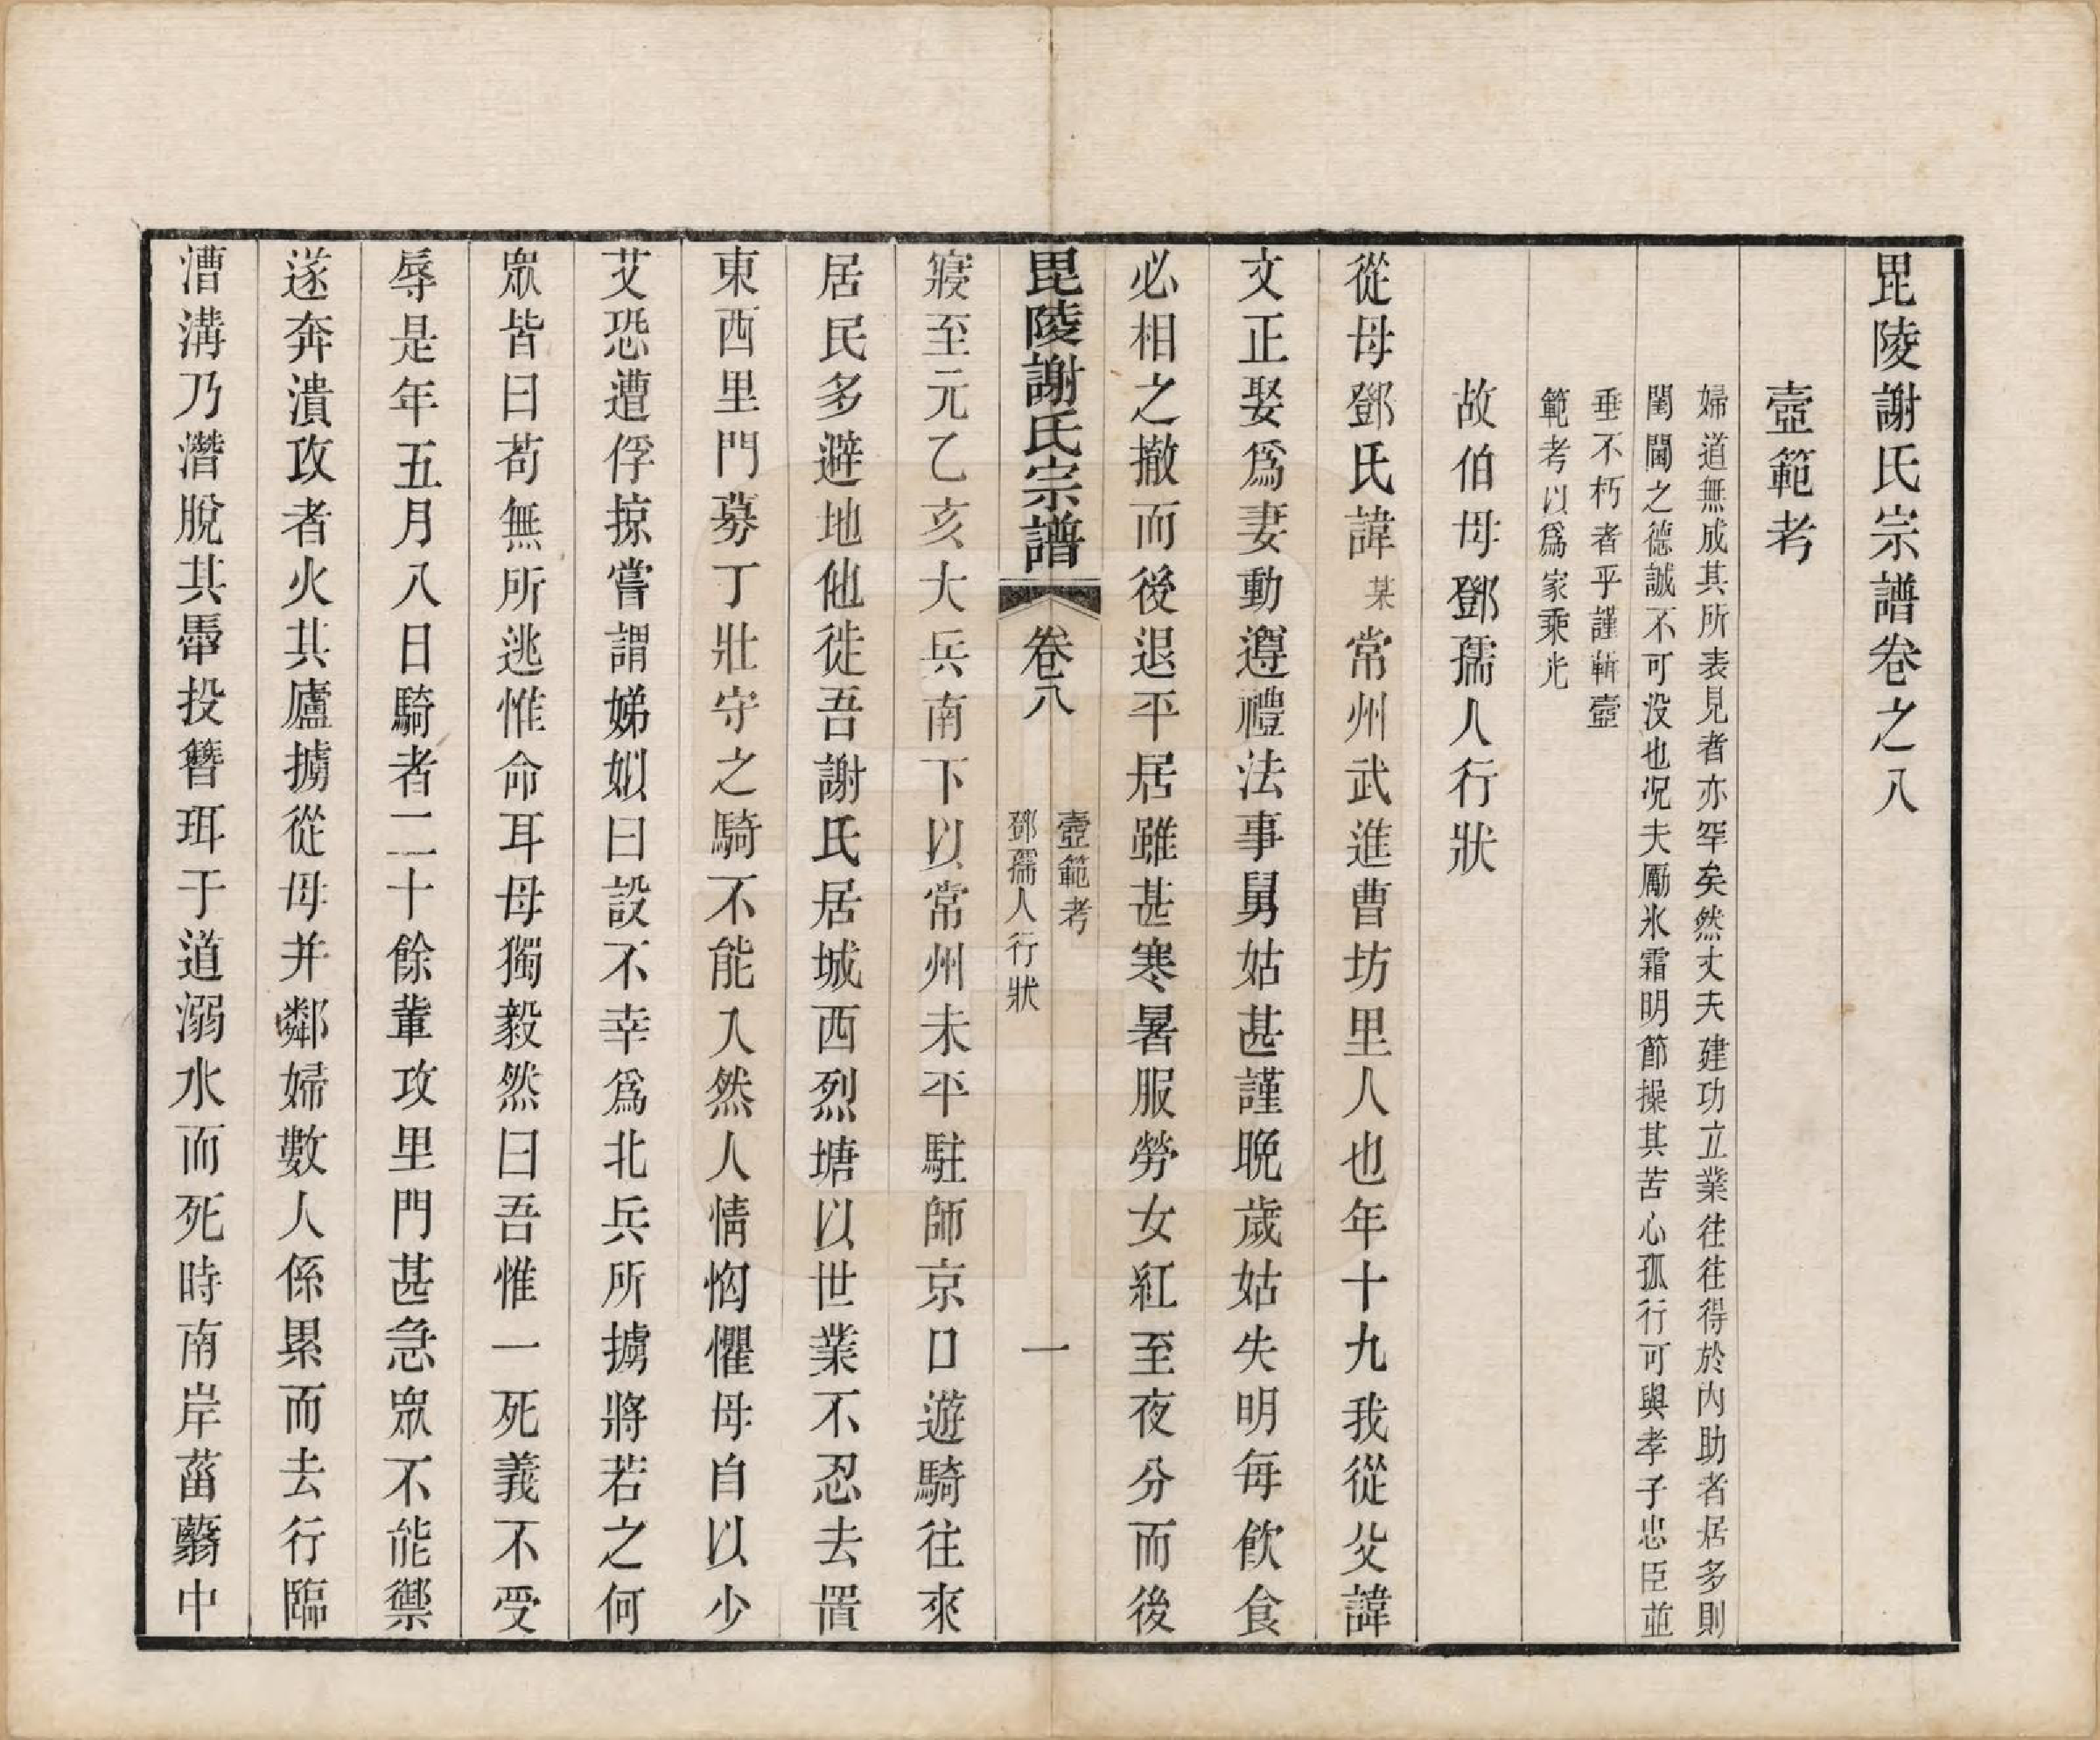 毘陵謝氏宗譜卷之八
壼範考
婦道無成其所表見者亦罕矣然丈夫建功立業往往得於內助者居多則
閨閫之德誠不可沒也況夫勵氷霜明節操其苦心孤行可與孝子忠臣並
垂不朽者乎謹輯壼
範考以爲家乘光
故伯母鄧孺人行狀
從母鄧氏諱某常州武進曹坊里人也年十九我從父諱
文正娶爲妻動遵禮法事舅姑甚謹晚歲姑失明每飲食
必相之撤而後退平居雖甚寒暑服勞女紅至夜分而後
毘陵謝氏宗譜 卷八 壼範考 鄧孺人行狀 一
寢至元乙亥大兵南下以常州未平駐師京口遊騎往來
居民多避地他徙吾謝氏居城西烈塘以世業不忍去置
東西里門募丁壯守之騎不能入然人情恟懼母自以少
艾恐遭俘掠嘗謂娣姒曰設不幸爲北兵所擄將若之何
眾皆曰苟無所逃惟命耳母獨毅然曰吾惟一死義不受
辱是年五月八日騎者二十餘輩攻里門甚急眾不能禦
遂奔潰攻者火其廬擄從母并鄰婦數人係累而去行臨
漕溝乃潛脫其帬投簪珥于道溺水而死時南岸菑蘙中